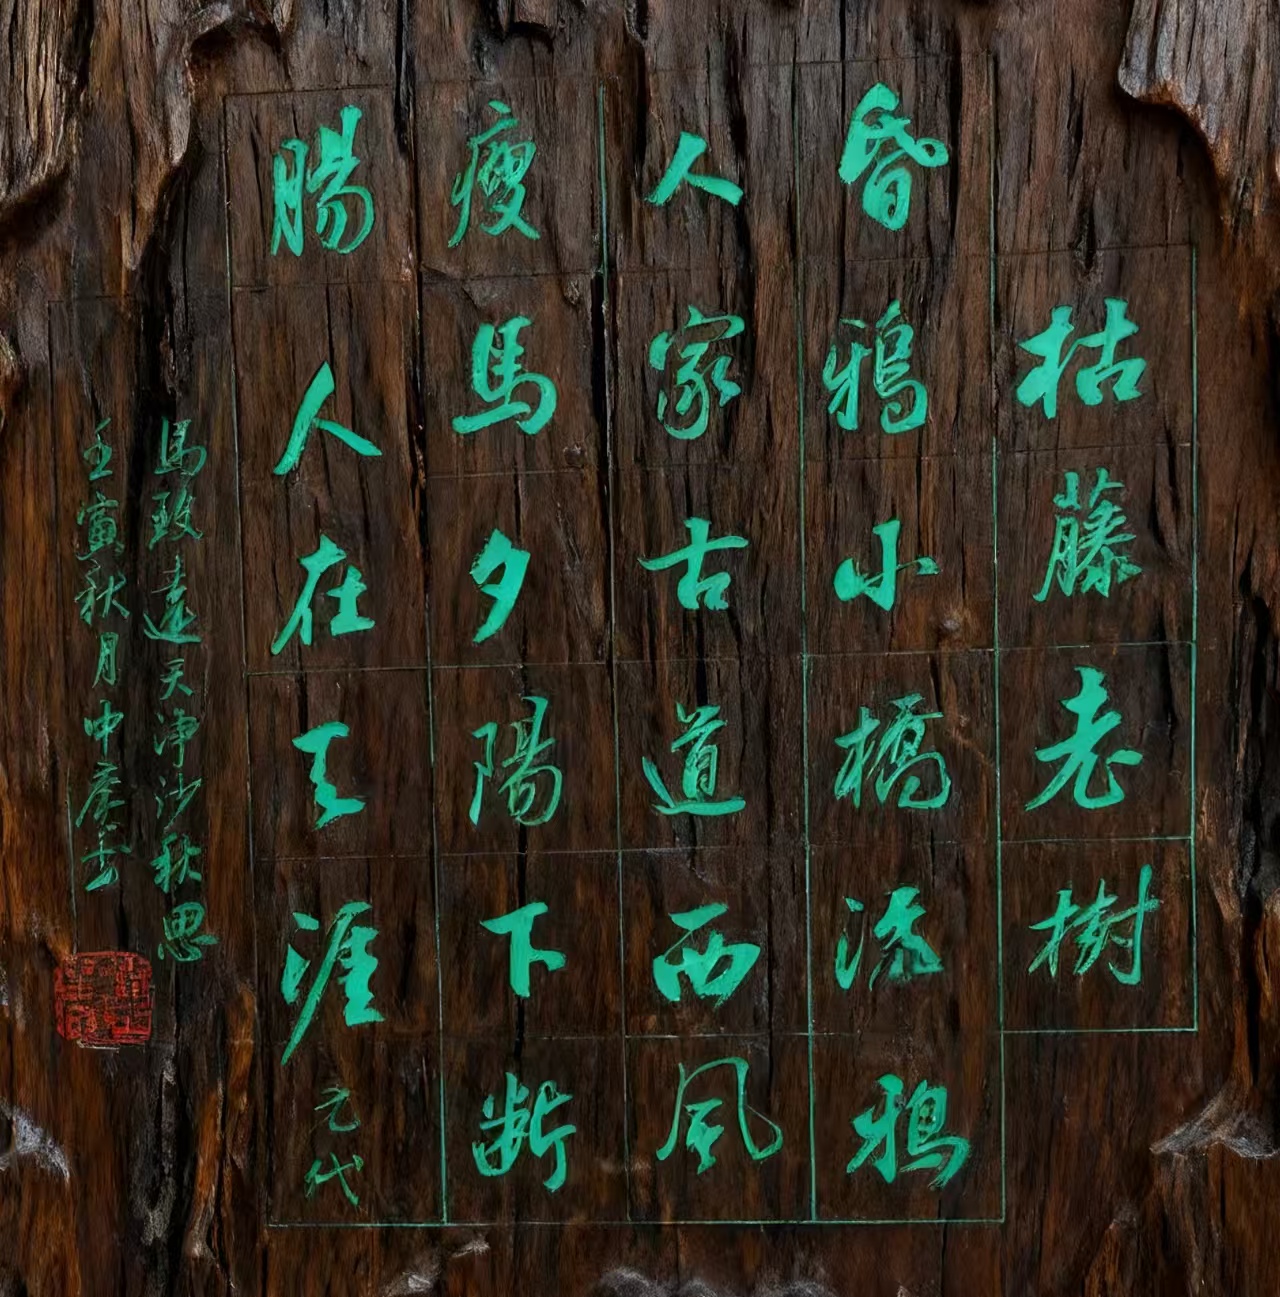 枯藤老樹
昏鴉小橋流鴉
人家古道西風
瘦馬夕陽下断
腸人在天涯 元代
馬致遠天淨沙秋思
壬寅秋月中